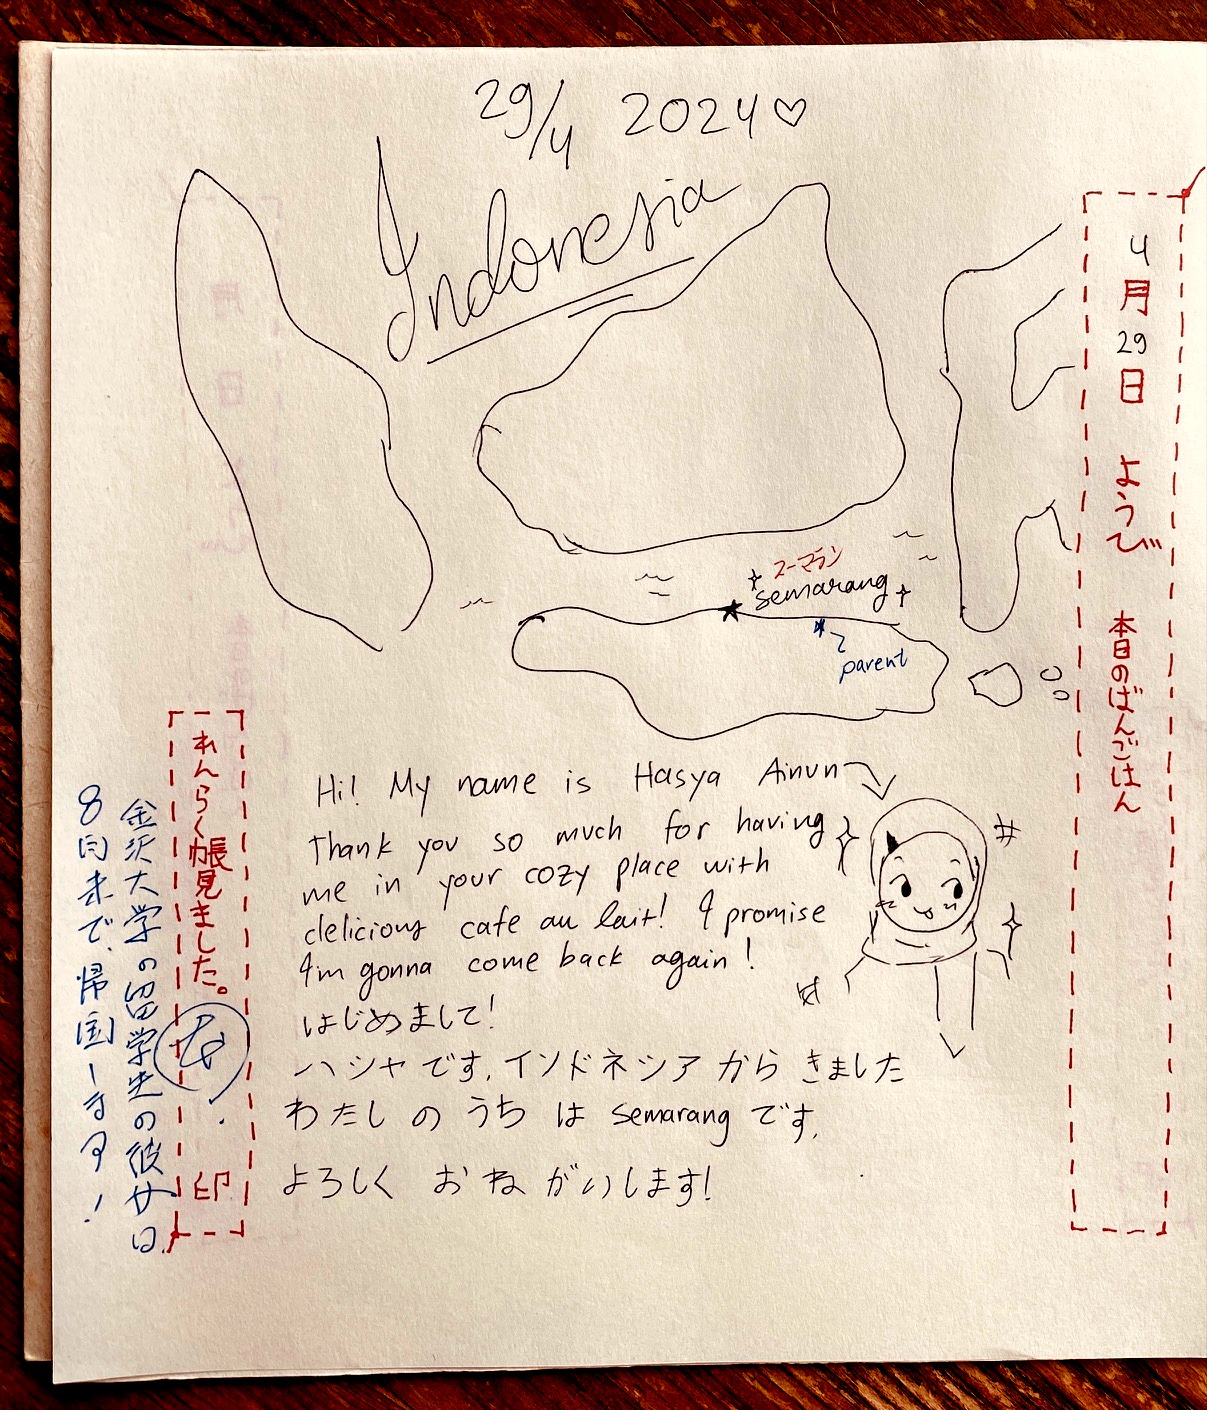 29/4 2024♡
Indonesia
4月29日 ようび 本日のばんごはん
スーマラン
semarang
parent
Hi! My name is Hasya Ainun
Thank you so much for having
me in your cozy place with
delicious cafe au lait! I promise
I'm gonna come back again!
はじめまして!
ハシャです, インドネシア から きました
わたし の うち は semarang です.
よろしく おねがいします!
れんらく帳見ました。
印
金沢大学の留学生の彼女は
8月末で、帰国します!